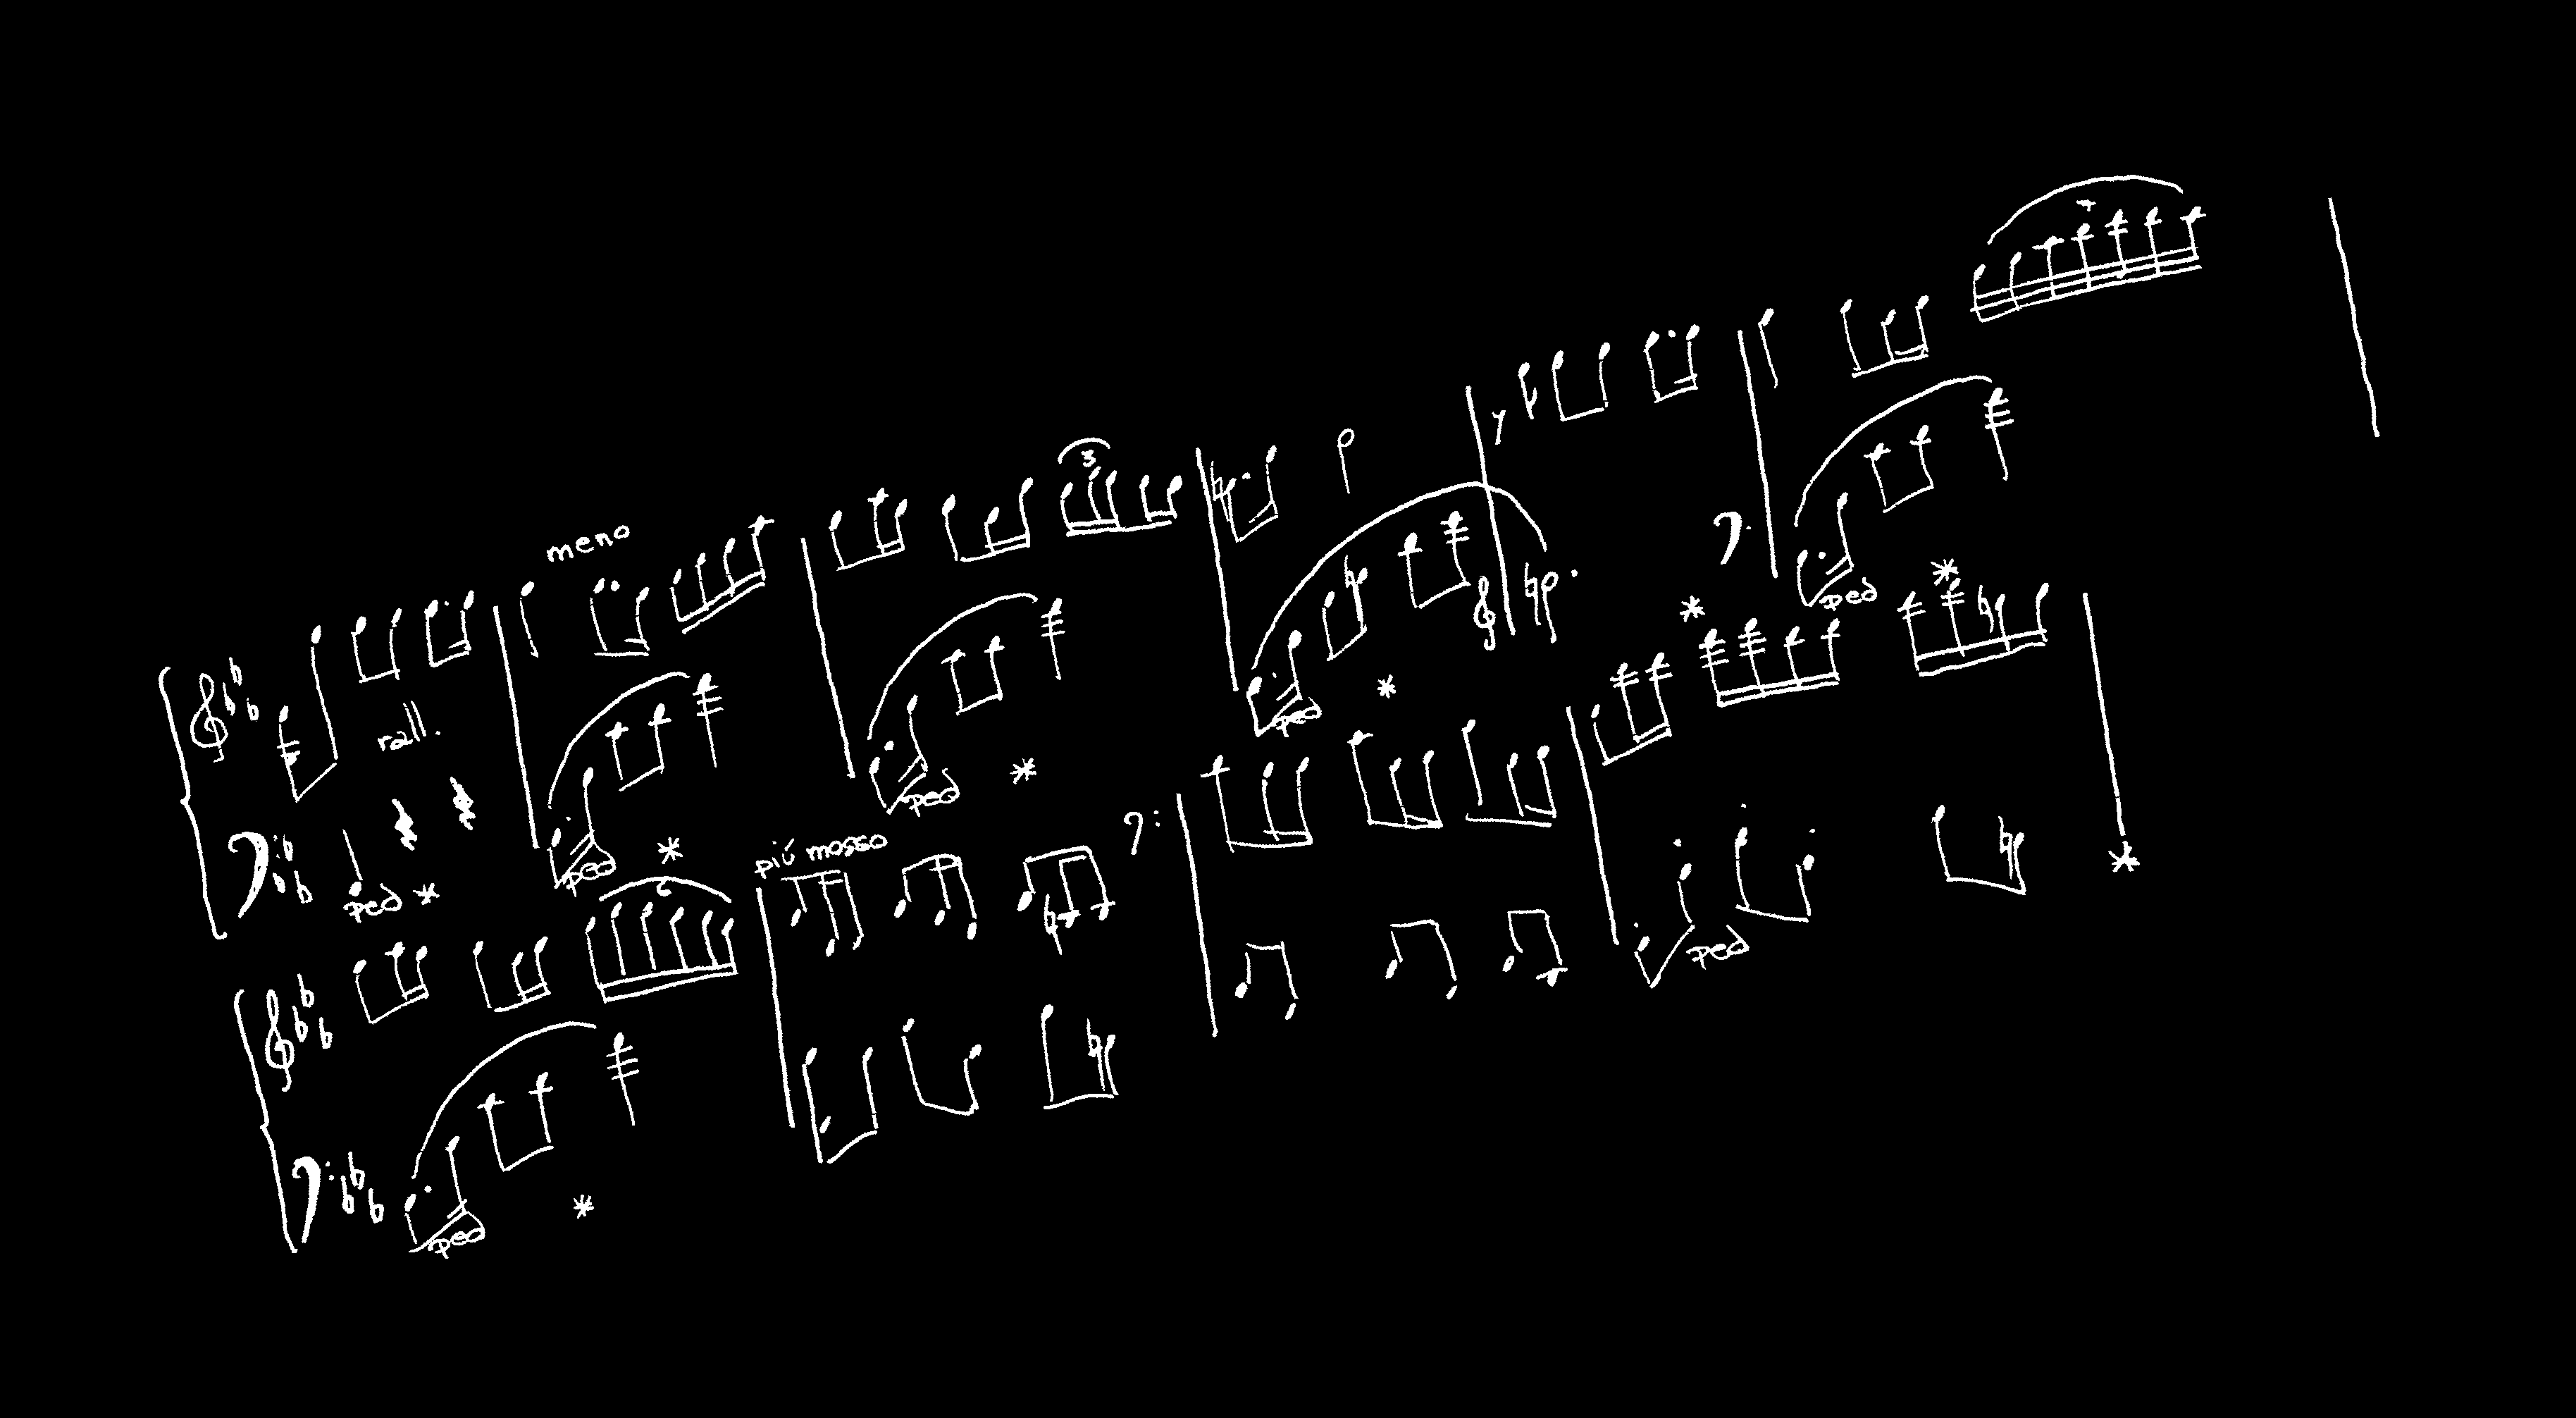 meno
3
rall.
ped
ped
ped
ped
ped
6
più mosso
ped
ped
7